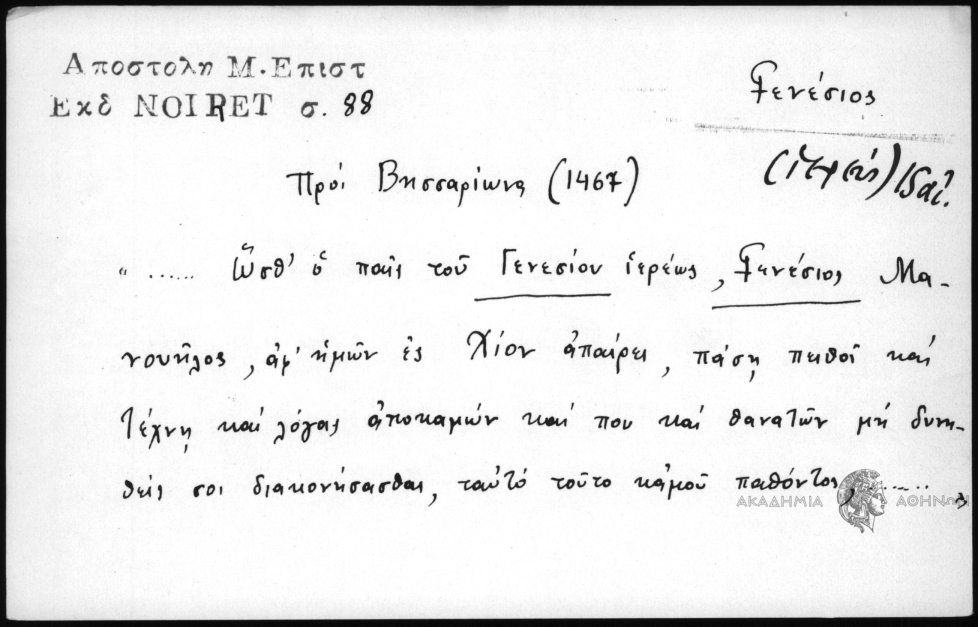 Αποστολη Μ. Επιστ
Εκδ NOIRET σ. 88
Γενέσιος
(ἱερεύς)
Πρός Βησσαρίωνα (1467)
" ...... Ὥσθ' ὁ παῖς τοῦ Γενεσίου ἱερέως, Γενέσιος Μα-
νουῆλος, ἀφ' ἡμῶν ἐς Χίον ἀπαίρει, πάσῃ πειθοῖ καί
τέχνῃ καί λόγοις ἀποκαμών καί που καί θανατῶν μή δυνη-
θείς σοι διακονήσασθαι, ταὐτό τοῦτο κἀμοῦ παθόντος, ......"
ΑΚΑΔΗΜΙΑ ΑΘΗΝΩΝ